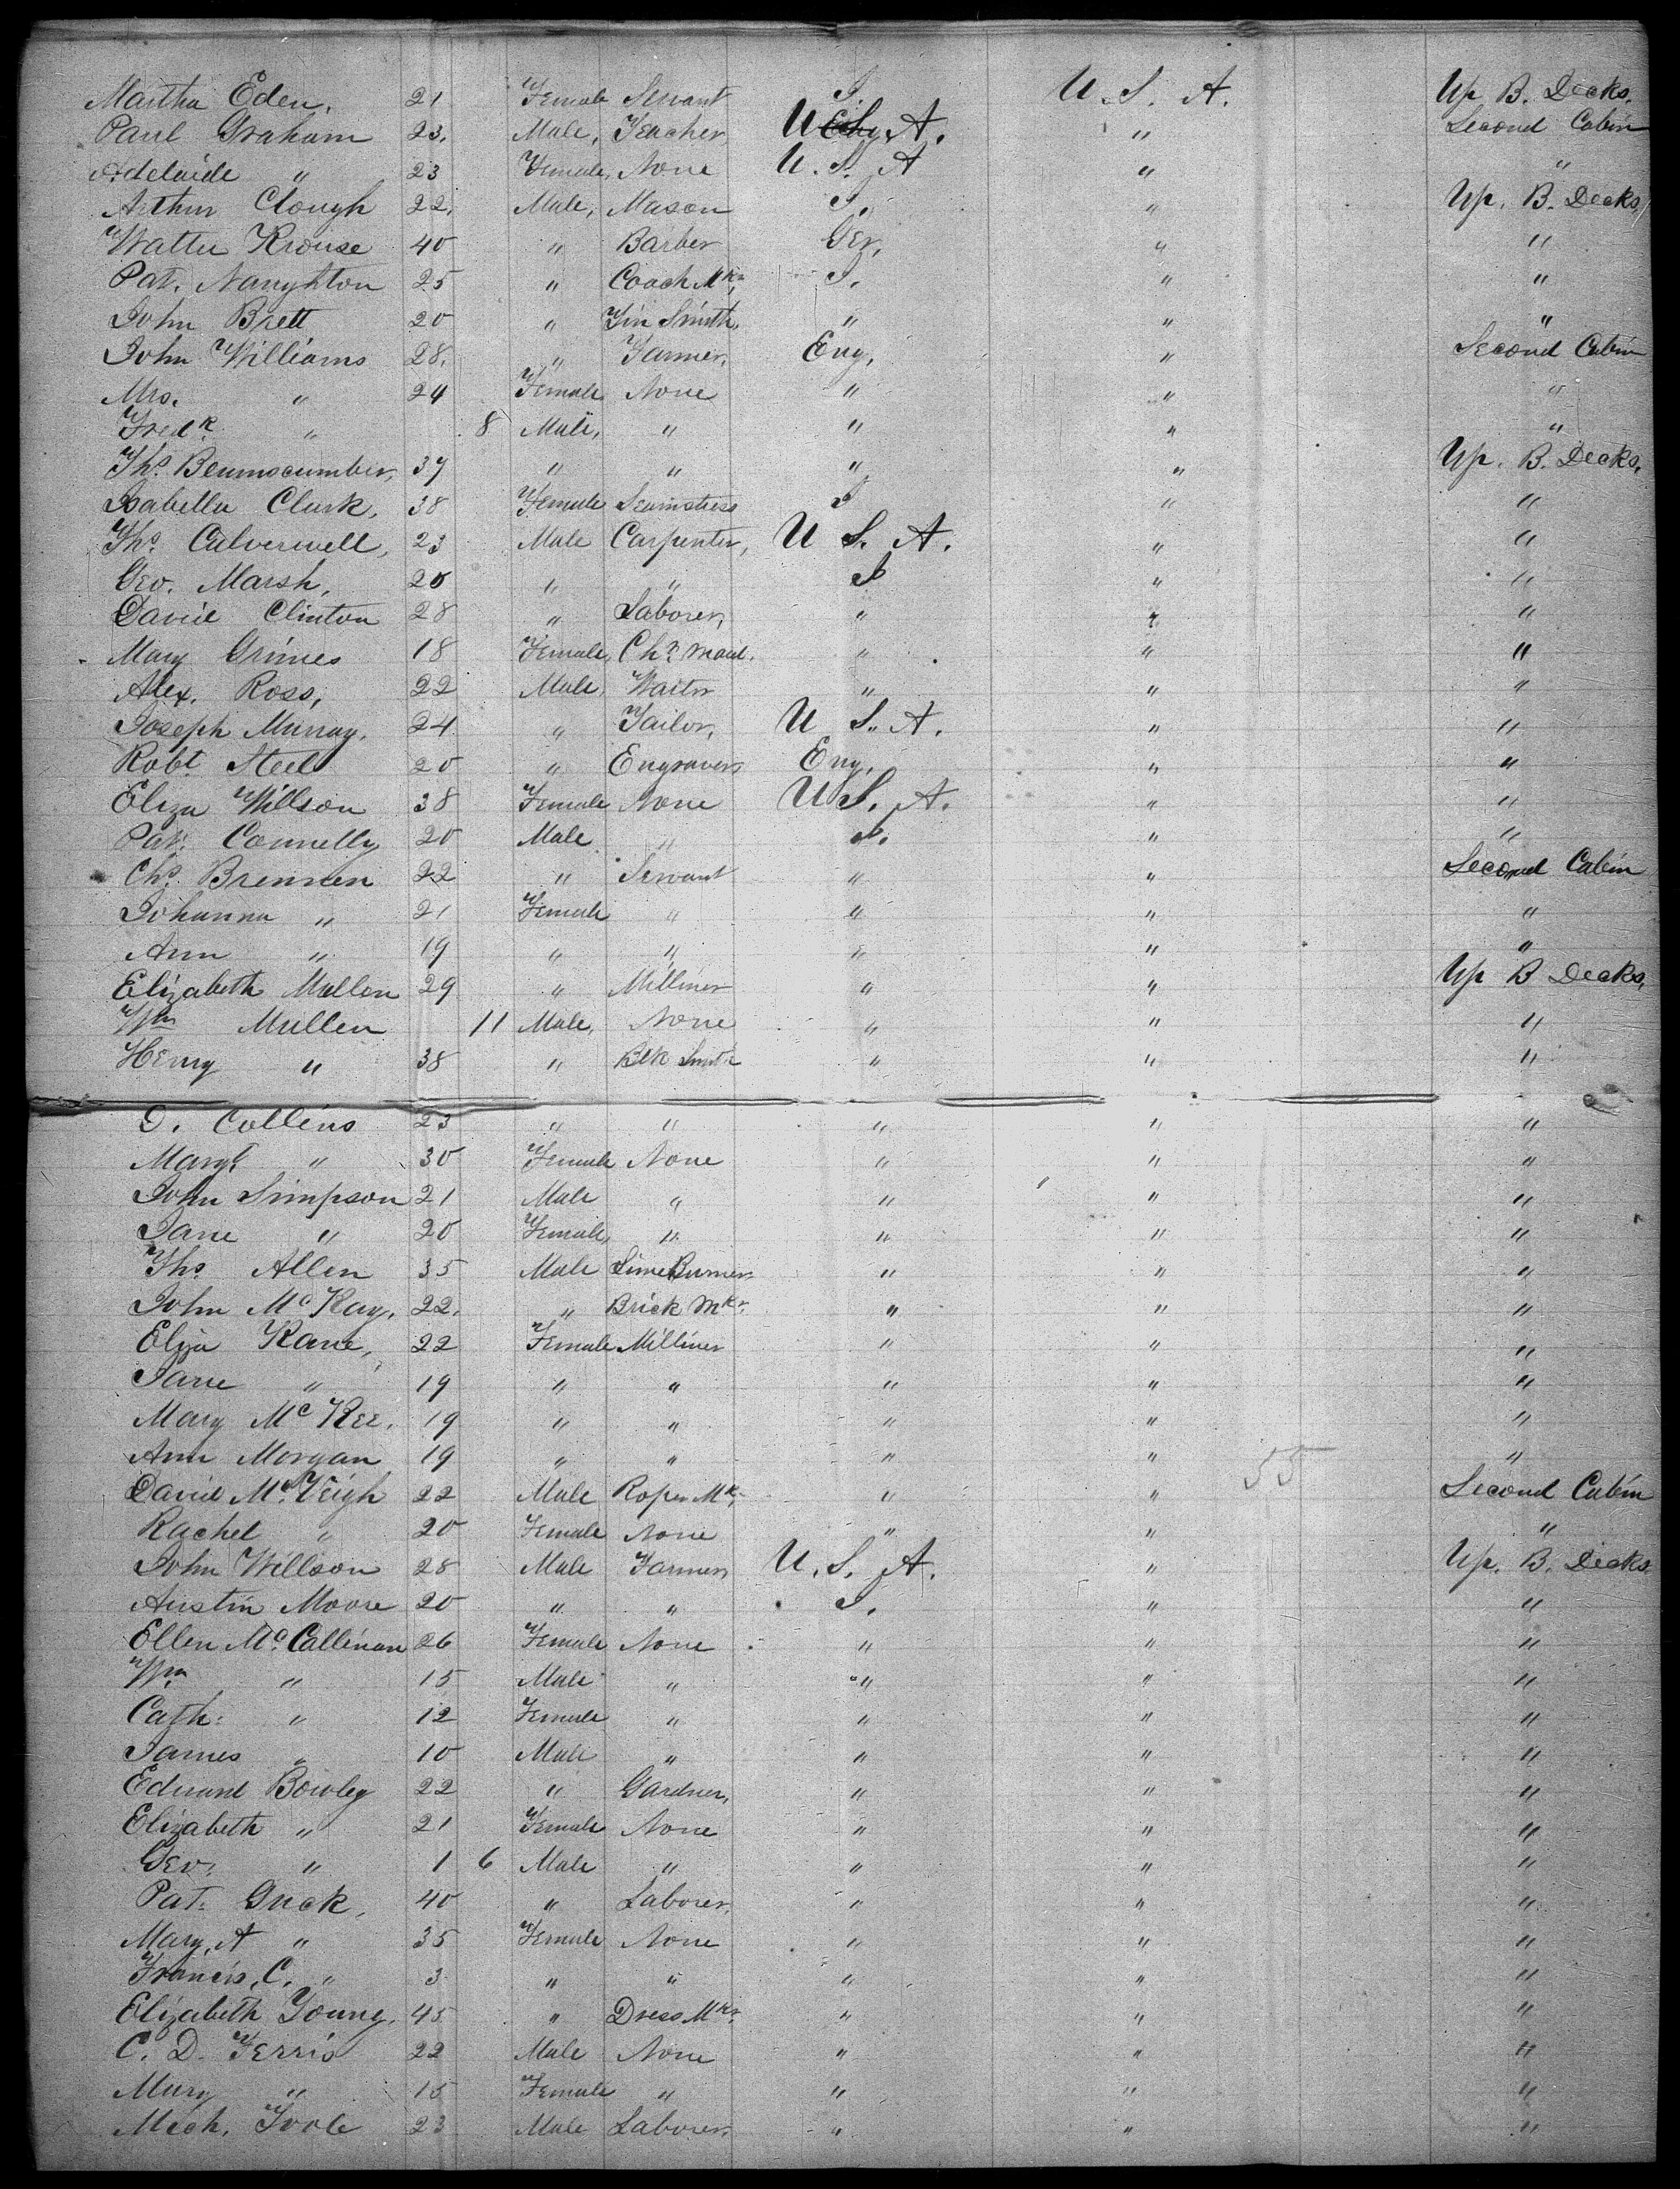 Martha Eden, 21 Female Servant I. U. S. A. Up B. Decks,
Paul Graham 23, Male, Teacher, U S A. " Second Cabin
Adelaide " 23 Female, None U. S. A " "
Arthur Clough 22, Male, Mason I. " Up. B. Decks,
Walter Krouse 40 " Barber Ger, " "
Pat. Naughton 25 " Coach Mkr I. " "
John Brett 20 " Tin Smith, " " "
John Williams 28, " Farmer, Eng, " Second Cabin
Mrs. " 24 Female None " " "
Fredk " 8 Male, " " " "
Ths. 37 " " " " Up. B. Decks,
Isabella Clark, 38 Female Seamstress I " "
Ths. Calverwell, 23 Male Carpenter, U S. A. " "
Geo. Marsh, 20 " " I " "
David Clinton 28 " Laborer, " " "
Mary Grimes 18 Female, Chr. Maid. " " "
Alex. Ross, 22 Male, Waiter " " "
Joseph Murray, 24 " Tailor, U S. A. " "
Robt. Steel 20 " Engraver, Eng, " "
Eliza Willson 38 Female None U S. A. " "
Pat. Connelly 20 Male " I. " "
Chs. Brennen 22 " Servant " " Second Cabin
Johanna " 21 Female " " " "
Ann " 19 " " " " "
Elizabeth Mullen 29 " Milliner " " Up B Decks,
Wm Mullen 11 Male, None " " "
Henry " 38 " Blk Smith " " "
D. Collins 23 " " " " "
Margt. " 30 Female None " " "
John Simpson 21 Male " " " "
Jane " 20 Female, " " " "
Ths. Allen 35 Male Lime Burner " " "
John Mc Kay, 22. " Brick Mkr. " " "
Eliza Kane, 22 Female Milliner " " "
Jane " 19 " " " " "
Mary Mc Kee, 19 " " " " "
Ann Morgan 19 " " " " "
David Mc. Veigh 22 Male Roper Mkr " 55 " Second Cabin
Rachel " 20 Female None " " "
John Willson 28 Male Farmer, U. S. A. " Up. B. Decks
Austin Moore 20 " " I. " "
Ellen Mc. Callinan 26 Female None " " "
Wm. " 15 Male " " " "
Cath: " 12 Female " " " "
James " 10 Male " " " "
Edward Bowley 22 " Gardner, " " "
Elizabeth " 21 Female None " " "
Geo: " 1 6 Male " " " "
Pat. Guck, 40 " Laborer, " " "
Mary, A " 35 Female None " " "
Francis, C. " 3 " " " " "
Elizabeth Young, 45 " Dress Mkr. " " "
C. D. Ferris 22 Male None " " "
Mary " 15 Female " " " "
Mich. Toole 23 Male Laborer, " " "